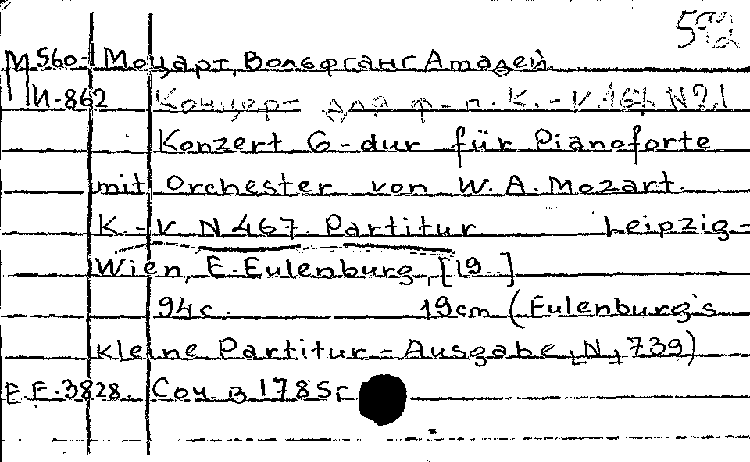 592
М 560-1 Моцарт, Вольфганг Амадей
И-862 Концерт для ф-п. К.-V. 467 N21
Konzert G-dur für Pianoforte
mit Orchester von W. A. Mozart
K.-V. N 467. Partitur Leipzig-
Wien, E. Eulenburg, [19 ]
94 с. 19cm (Eulenburg's
kleine Partitur-Ausgabe, N 739)
E.E. 3828. Соч в 1785г